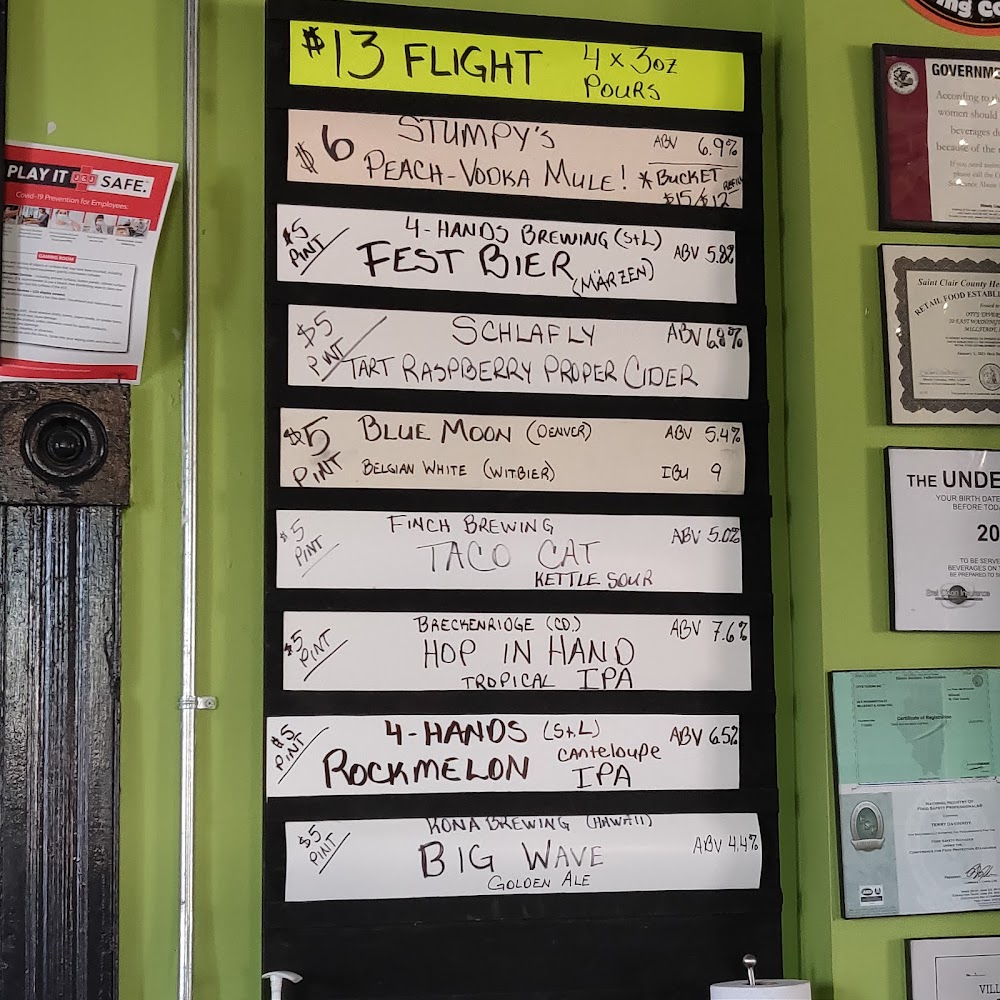 $13 FLIGHT 4 x 3oz
POURS
$6 STUMPY'S ABV 6.9%
PEACH-VODKA MULE! * BUCKET
$15/$12 REFILL
$5 PINT 4-HANDS BREWING (StL) ABV 5.8%
FEST BIER (MÄRZEN)
$5 PINT SCHLAFLY ABV
TART RASPBERRY PROPER CIDER
$5 BLUE MOON (DENVER) ABV 5.4%
PINT BELGIAN WHITE (WITBIER) IBU 9
$5 PINT FINCH BREWING ABV 5.0%
TACO CAT
KETTLE SOUR
$5 PINT BRECKENRIDGE (CO.) ABV 7.6%
HOP IN HAND
TROPICAL IPA
$5 PINT 4-HANDS (StL) ABV 6.5%
ROCKMELON canteloupe
IPA
$5 PINT KONA BREWING (HAWAII) ABV 4.4%
BIG WAVE
GOLDEN ALE
PLAY IT J&J SAFE.
Covid-19 Prevention for Employees:
GAMING ROOM
ng co
GOVERNME
According to th
women should
beverages du
because of the r
Saint Clair County He
RETAIL FOOD ESTABL
THE UNDE
YOUR BIRTH DATE
BEFORE TOD
20
TO BE SERVE
BEVERAGES ON T
BE PREPARED TO S
Certificate of Registration
NATIONAL REGISTRY OF
FOOD SAFETY PROFESSIONALS
VILL